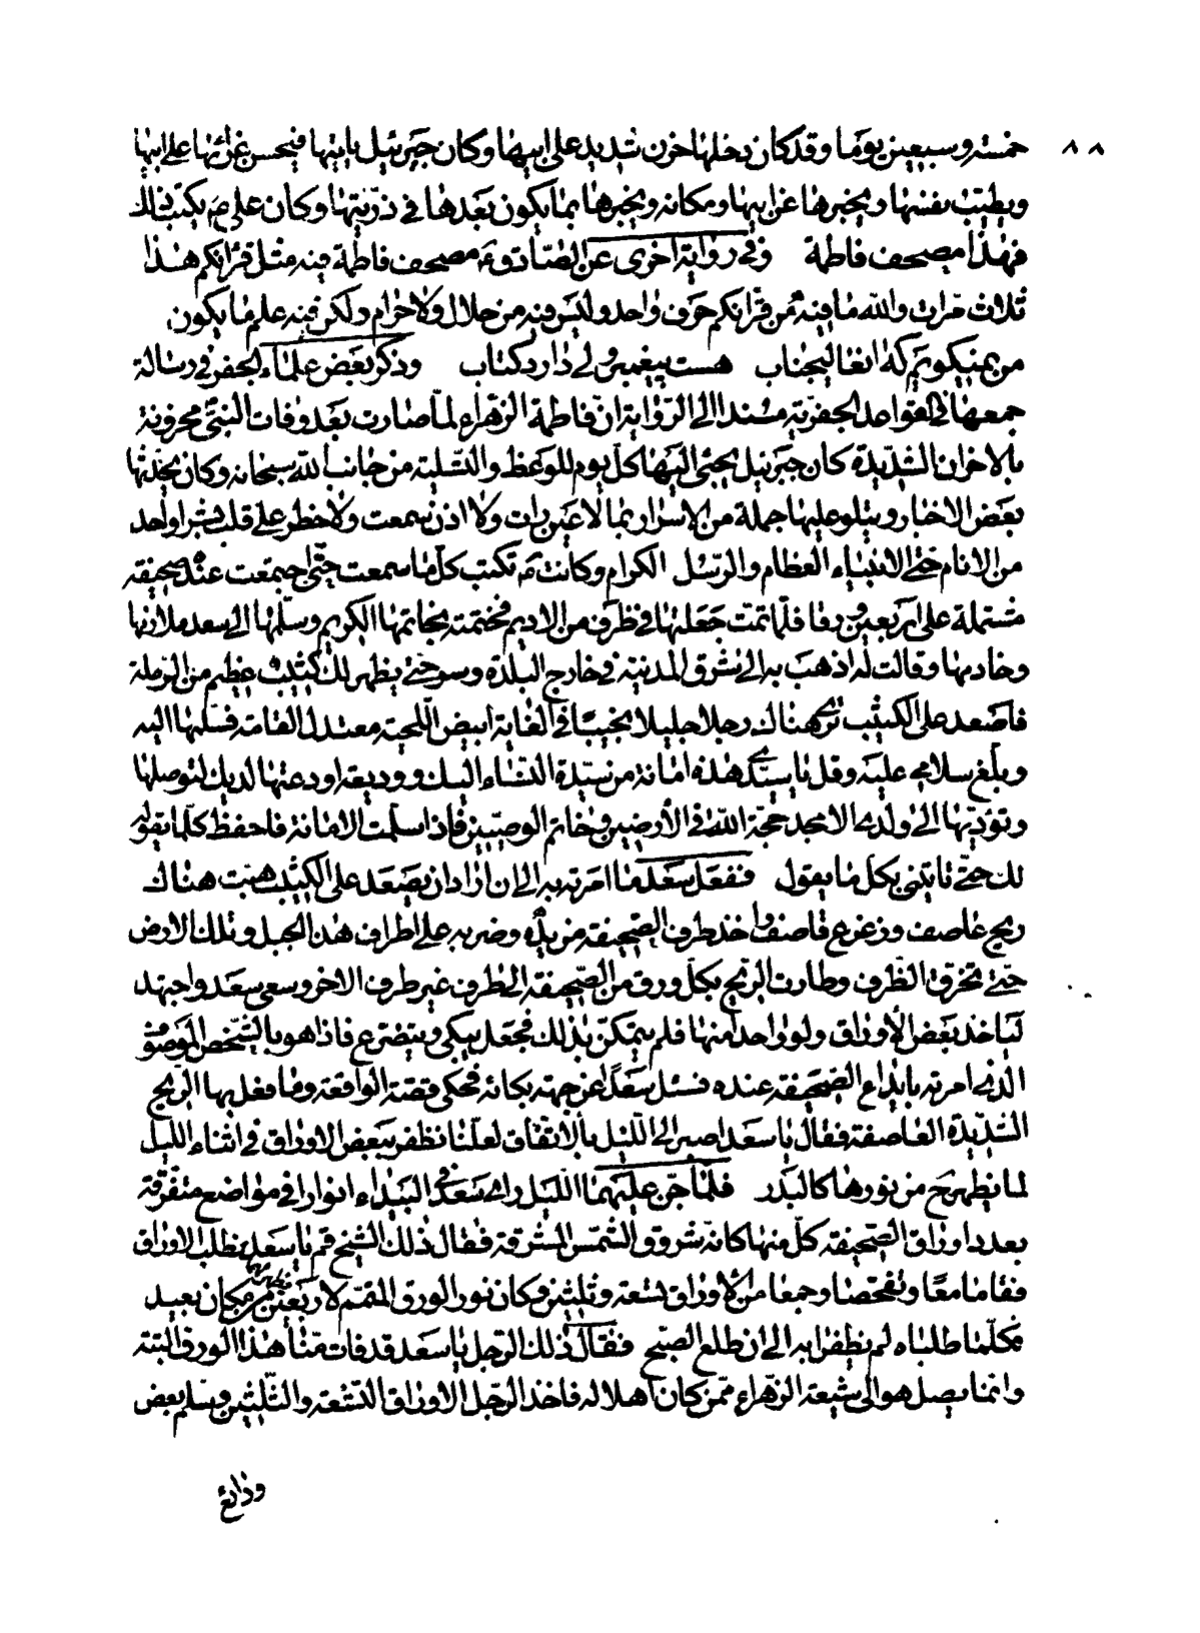 ٨٨
خمسة وسبعين يوما وقد كان دخلها حزن شديد على ابيها وكان جبرئيل ياتيها فيحسن عزائها على ابيها
ويطيّب نفسها ويخبرها عن ابيها ومكانه ويخبرها بما يكون بعدها فى ذرّيتها وكان علىّ ع يكتب ذلك
فهذا مصحف فاطمة وفى رواية اخرى عن الصّادق ع مصحف فاطمة فيه مثل قرانكم هذا
ثلاث مرات والله ما فيه من قرانكم حرف واحد وليس فيه من حلال ولا حرام ولكن فيه علم ما يكون
من نميگويم كه آن عاليجناب هست پيغمبر ولى دارد كتاب وذكر بعض علماء الجفر فى رسالة
جمعها فى القواعد الجفريّة مسندا الى الرّواية انّ فاطمة الزّهراء لمّا صارت بعد وفات النبىّ محزونة
بالاحزان الشّديدة كان جبرئيل يجئى اليها كلّ يوم للوعظ والتّسلية من جانب الله سبحانه وكان يحدّثها
بعض الاخبار ويتلو عليها جملة من الاسرار بما لا عين رات ولا اذن سمعت ولا خطر على قلب بشر او احد
من الانام حتّى الانبياء العظام والرّسل الكرام وكانت ع تكتب كلّ ما سمعت حتّى اجتمعت عنده صحيفة
مشتملة على اربعين ورقا فلمّا تمّت جعلتها فى ظرف من الاديم فختمته بخاتمها الكريم وسلّمها الى سعد ملازمها
وخادمها وقالت له اذهب به الى شرق المدينة فى خارج البلدة وسر حتّى يظهر لك كثيب عظيم من الرّملة
فاصعد على الكثيب ترى هناك رجلا جليلا نجيبا فى الغاية ابيض اللّحية معتدل القامة فسلّمها اليه
وبلّغ سلامى عليه وقل يا سيّدى هذه امانة من سيّدة النّساء اليك ووديعة اودعتها لديك لتوصلها
وتؤدّيها الى ولدى الامجد حجّة الله فى الأرضين وخاتم الوصيّين فاذا سلّمت الامانة فاحفظ كلّما يقوله
لك حتّى تاتينى بكل ما يقول ففعل سعد ما امرته به الى ان اراد ان يصعد على الكثيب هبّت هناك
ريح عاصف وزعزع قاصف واخذ طرف الصّحيفة من يده وضربه على اطراف هذا الجبل وتلك الارض
حتّى تخرّق الظّرف وطارت الرّيح بكلّ ورق من الصّحيفة الى طرف غير طرف الاخر وسعى سعد واجتهد
لياخذ بعض الأوراق ولو واحدا منها فلم يتمكّن بذلك فجعل يبكى ويتضرّع فاذا هو بالشّخص الموصوف
الّذى امرته بايداع الصّحيفة عنده فسئل سعدا عن جهته بكائه فحكى قصّة الواقعة وما فعل بها الرّيح
الشّديدة العاصفة فقال يا سعد اصبر الى اللّيل بالاتّفاق لعلّنا نظفر ببعض الاوراق فى اثناء اللّيل
لما يظهر ح من نورها كالبدر فلمّا جنّ عليهما اللّيل راى سعد فى البيداء انوارا فى مواضع متفرّقة
بعدد اوراق الصّحيفة كلّ منها كانّه شروق الشّمس المشرقة فقال ذلك الشّيخ قم يا سعد نطلب الاوراق
فقاما معًا وتفحّصا وجمعا من الأوراق تسعة وثلثين فكان نور الورق المتمّم لاربعين من مكان بعيد
فكلّما طلباه لم يظفرا به الى ان طلع الصّبح فقال ذلك الرّجل يا سعد قد فات منّا هذا الورق البتّة
وانّما يصل هو الى شيعة الزّهراء ممّن كان اهلا له فاخذ الرّجل الاوراق التّسعة والثّلثين وسلم بعض
ودائع